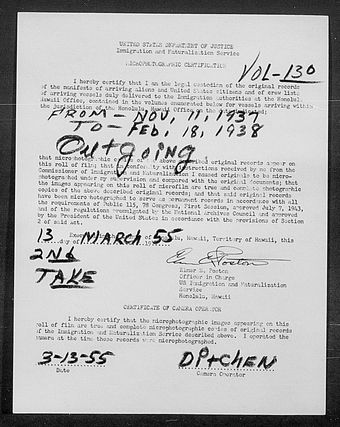 UNITED STATES DEPARTMENT OF JUSTICE
Immigration and Naturalization Service
MICROPHOTOGRAPHIC CERTIFICATION
VOL-130
I hereby certify that I am the legal custodian of the original records
of the manifests of arriving aliens and United States citizens and of crew list;
of arriving vessels duly delivered to the Immigration authorities at the Honolulu,
Hawaii Office, contained in the volumes enumerated below for vessels arriving within
the jurisdiction of the Honolulu, Hawaii Office
FROM - NOV, 11, 1937
TO - FEB, 18, 1938
Outgoing
that microphotographic of above described original records appear on
this roll of film; that in conformity with instructions received by me from the
Commissioner of Immigration and Naturalization I caused originals to be micro-
photographed under my supervision and compared with the original documents; that
the images appearing on this roll of microfilm are true and complete photographic
copies of the above described original records; and that said original records
have been microphotographed to serve as permanent records in accordance with all
the requirements of Public 115, 78 Congress, First Session, approved July 7, 1943,
and of the regulations promulgated by the National Archives Council and approved
by the President of the United States in accordance with the provisions of Section
2 of said act.
Hawaii, Territory of Hawaii, this
13 MARCH 55
day of
2Nd
TAKE
Elmer B. Poston
Officer in Charge
US Immigration and Naturalization
Service
Honolulu, Hawaii
CERTIFICATE OF CAMERA OPERATOR
I hereby certify that the microphotographic images appearing on this
roll of film are true and complete microphotographic copies of original records
of the Immigration and Naturalization Service described above. I operated the
camera at the time these records were microphotographed.
3-13-55
Date
DPitCHEN
Camera Operator